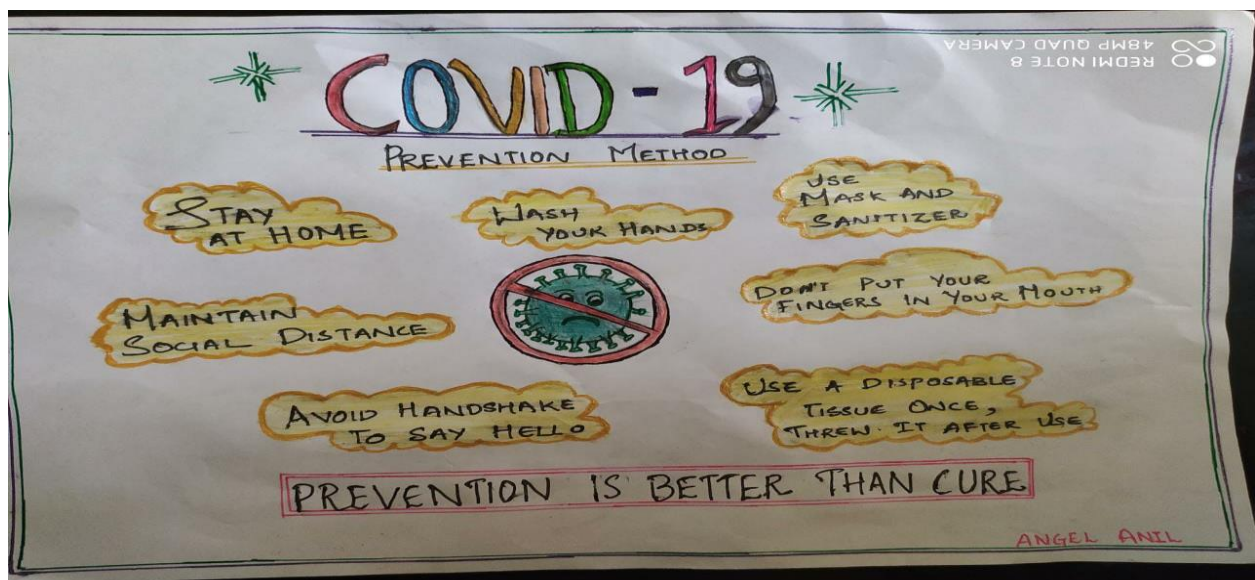 REDMI NOTE 8
48MP QUAD CAMERA
COVID-19
PREVENTION METHOD
STAY
AT HOME
WASH
YOUR HANDS
USE
MASK AND
SANITIZER
MAINTAIN
SOCIAL DISTANCE
DON'T PUT YOUR
FINGERS IN YOUR MOUTH
AVOID HANDSHAKE
TO SAY HELLO
USE A DISPOSABLE
TISSUE ONCE,
THREW IT AFTER USE
PREVENTION IS BETTER THAN CURE
ANGEL ANIL